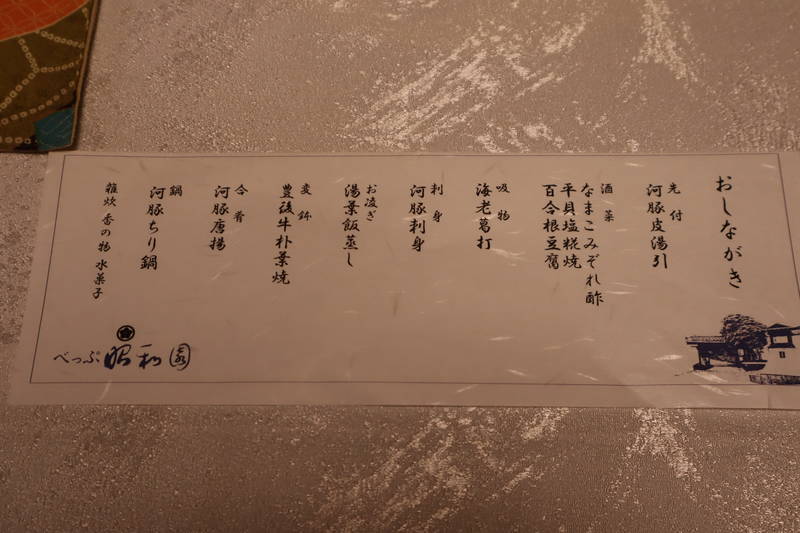 おしながき
先付
河豚皮湯引
酒菜
なまこみぞれ酢
平貝塩糀焼
百合根豆腐
吸物
海老葛打
刺身
河豚刺身
お凌ぎ
湯葉飯蒸し
変鉢
豊後牛朴葉焼
合肴
河豚唐揚
鍋
河豚ちり鍋
雑炊 香の物 水菓子
べっぷ 昭和園